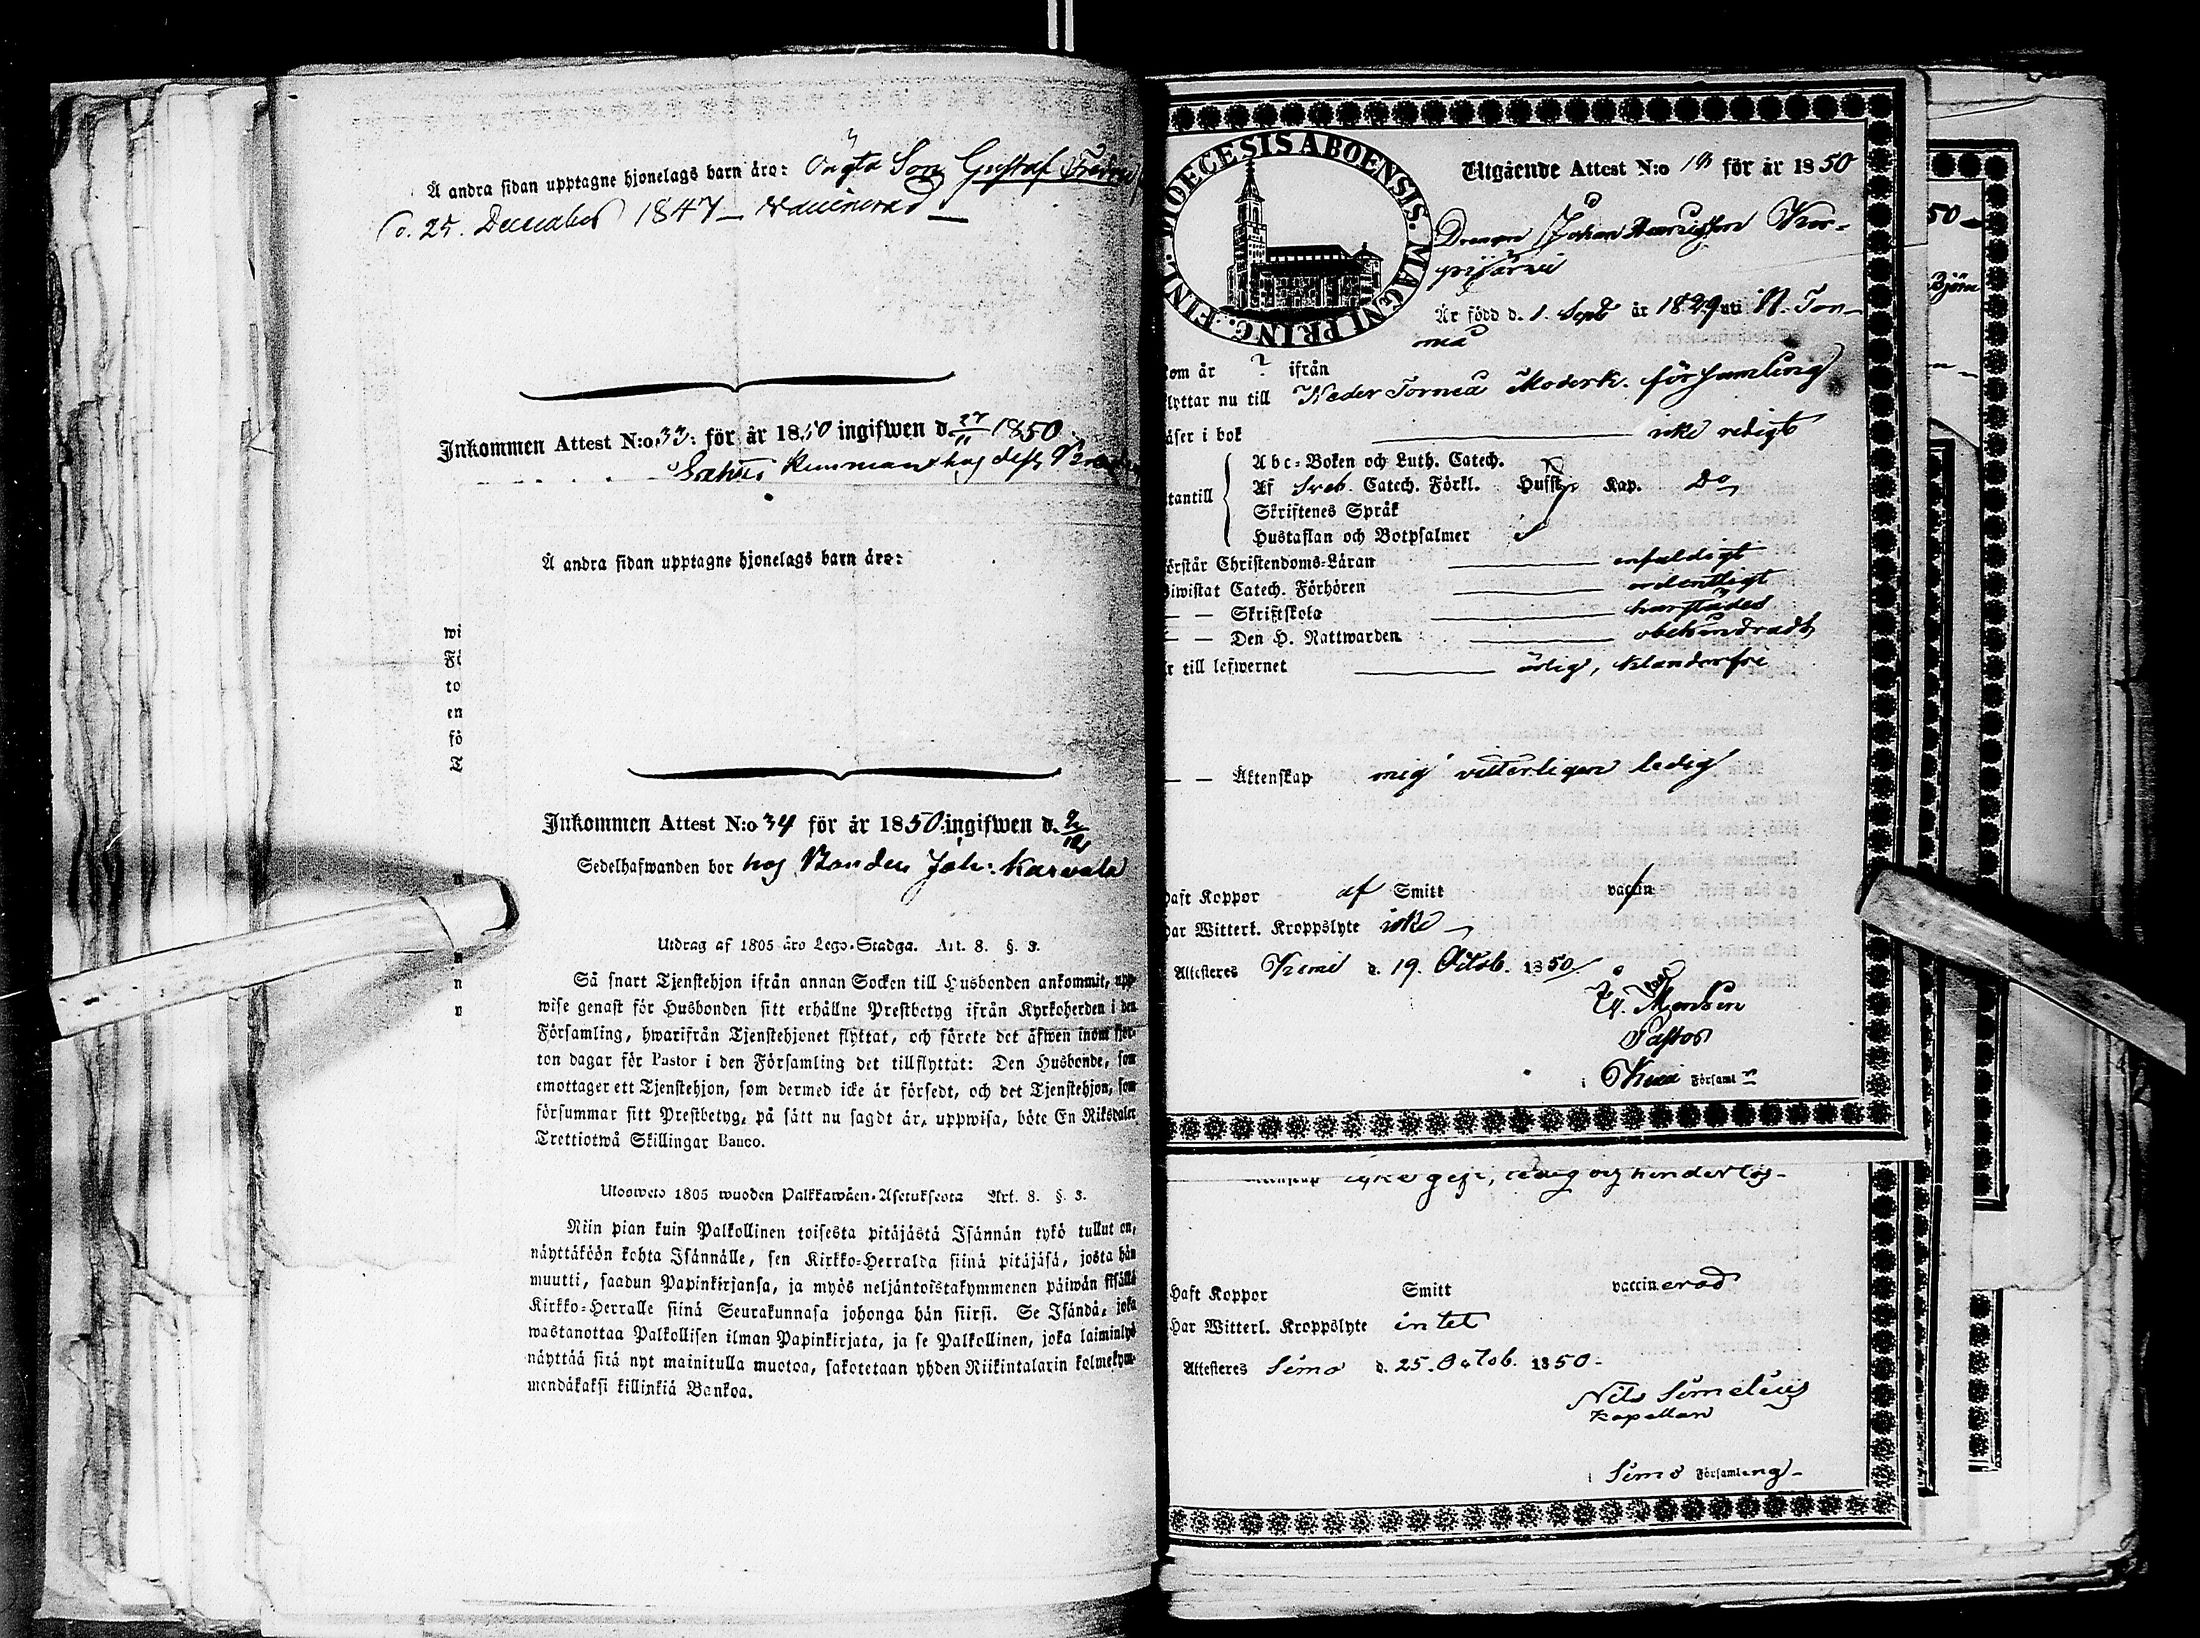 Å andra sidan upptagne hjonelags barn äro: Ongta Son Gustaf
d. 25. December 1847 — vaccinerad —
Inkommen Attest N:o 33: för år 1850 ingifwen d. 27/11 1850.
Å andra sidan upptagne hjonelags barn äro:
wi
Fö
to
en
fö
Inkommen Attest N:o 34 för år 1850 ingifwen d. 2/12
Sedelhafwanden bor hos Bonden Joh: Karvala
Utdrag af 1805 års Lego-Stadga. Art. 8. §. 3.
Så snart Tjenstehjon ifrån annan Socken till Husbonden ankommit, upp-
wise genast för Husbonden sitt erhållne Prestbetyg ifrån Kyrkoherden i den
Församling, hwarifrån Tjenstehjonet flyttat, och förete det äfwen inom fjor-
ton dagar för Pastor i den Församling det tillflyttat: Den Husbonde, som
emottager ett Tjenstehjon, som dermed icke är försedt, och det Tjenstehjon, som
försummar sitt Prestbetyg, på sätt nu sagdt är, uppwisa, böte En Riksdaler
Trettiotwå Skillingar Banco.
Ulosweto 1805 wuoden Palkkawäen-Asetuksesta Art. 8. §. 3.
Niin pian kuin Palkollinen toisesta pitäjästä Isännän tykö tullut on,
näyttäköön kohta Isännälle, sen Kirkko-Herralda siinä pitäjäsä, josta hän
muutti, saadun Papinkirjansa, ja myös neljäntoistakymmenen päiwän sisällä
Kirkko-Herralle siinä Seurakunnasa johonga hän siirsi. Se Isändä, joka
wastanottaa Palkollisen ilman Papinkirjata, ja se Palkollinen, joka laiminlyö
näyttää sitä nyt mainitulla muotoa, sakotetaan yhden Riikintalarin kolmekym-
mendäkaksi killinkiä Bankoa.
DIOECESIS ABOENSIS. MAGNI PRINC. FINL.
Utgående Attest N:o för år 1850
Drengen Johan Henricsson Kor-
pijärvi
Är född d. 1. Sept år 1829 uti N. Tor-
neå
kom år ? ifrån
flyttar nu till Neder Torneå Moderk. församling
läser i bok icke redigt
Abc-Boken och Luth. Catech.
utantill Af Sveb. Catech. Förkl. Husst. Kap. Do
Skriftenes Språk
Hustaflan och Botpsalmer
förstår Christendoms-Läran enfaldigt
biwistat Catech. Förhören ordentligt
— — Skriftskola härstädes
— — Den H. Nattwarden obehindradt
är till lefwernet ärlig, klanderfri
— — Äktenskap mig vitterligen ledig
haft Koppor af Smitt vaccin
har Witterl. Kroppslyte icke
Attesteres Kemi d. 19. Octob. 1850
Pastor
i Kemi Församl
icke gift, ledig och hinderlös-
Haft Koppor Smitt vaccinerad
Har Witterl. Kroppslyte intet
Attesteres Simo d. 25. Octob. 1850-
Nils Simelius
Kapellan
i Simo Församlng-
50
Björn